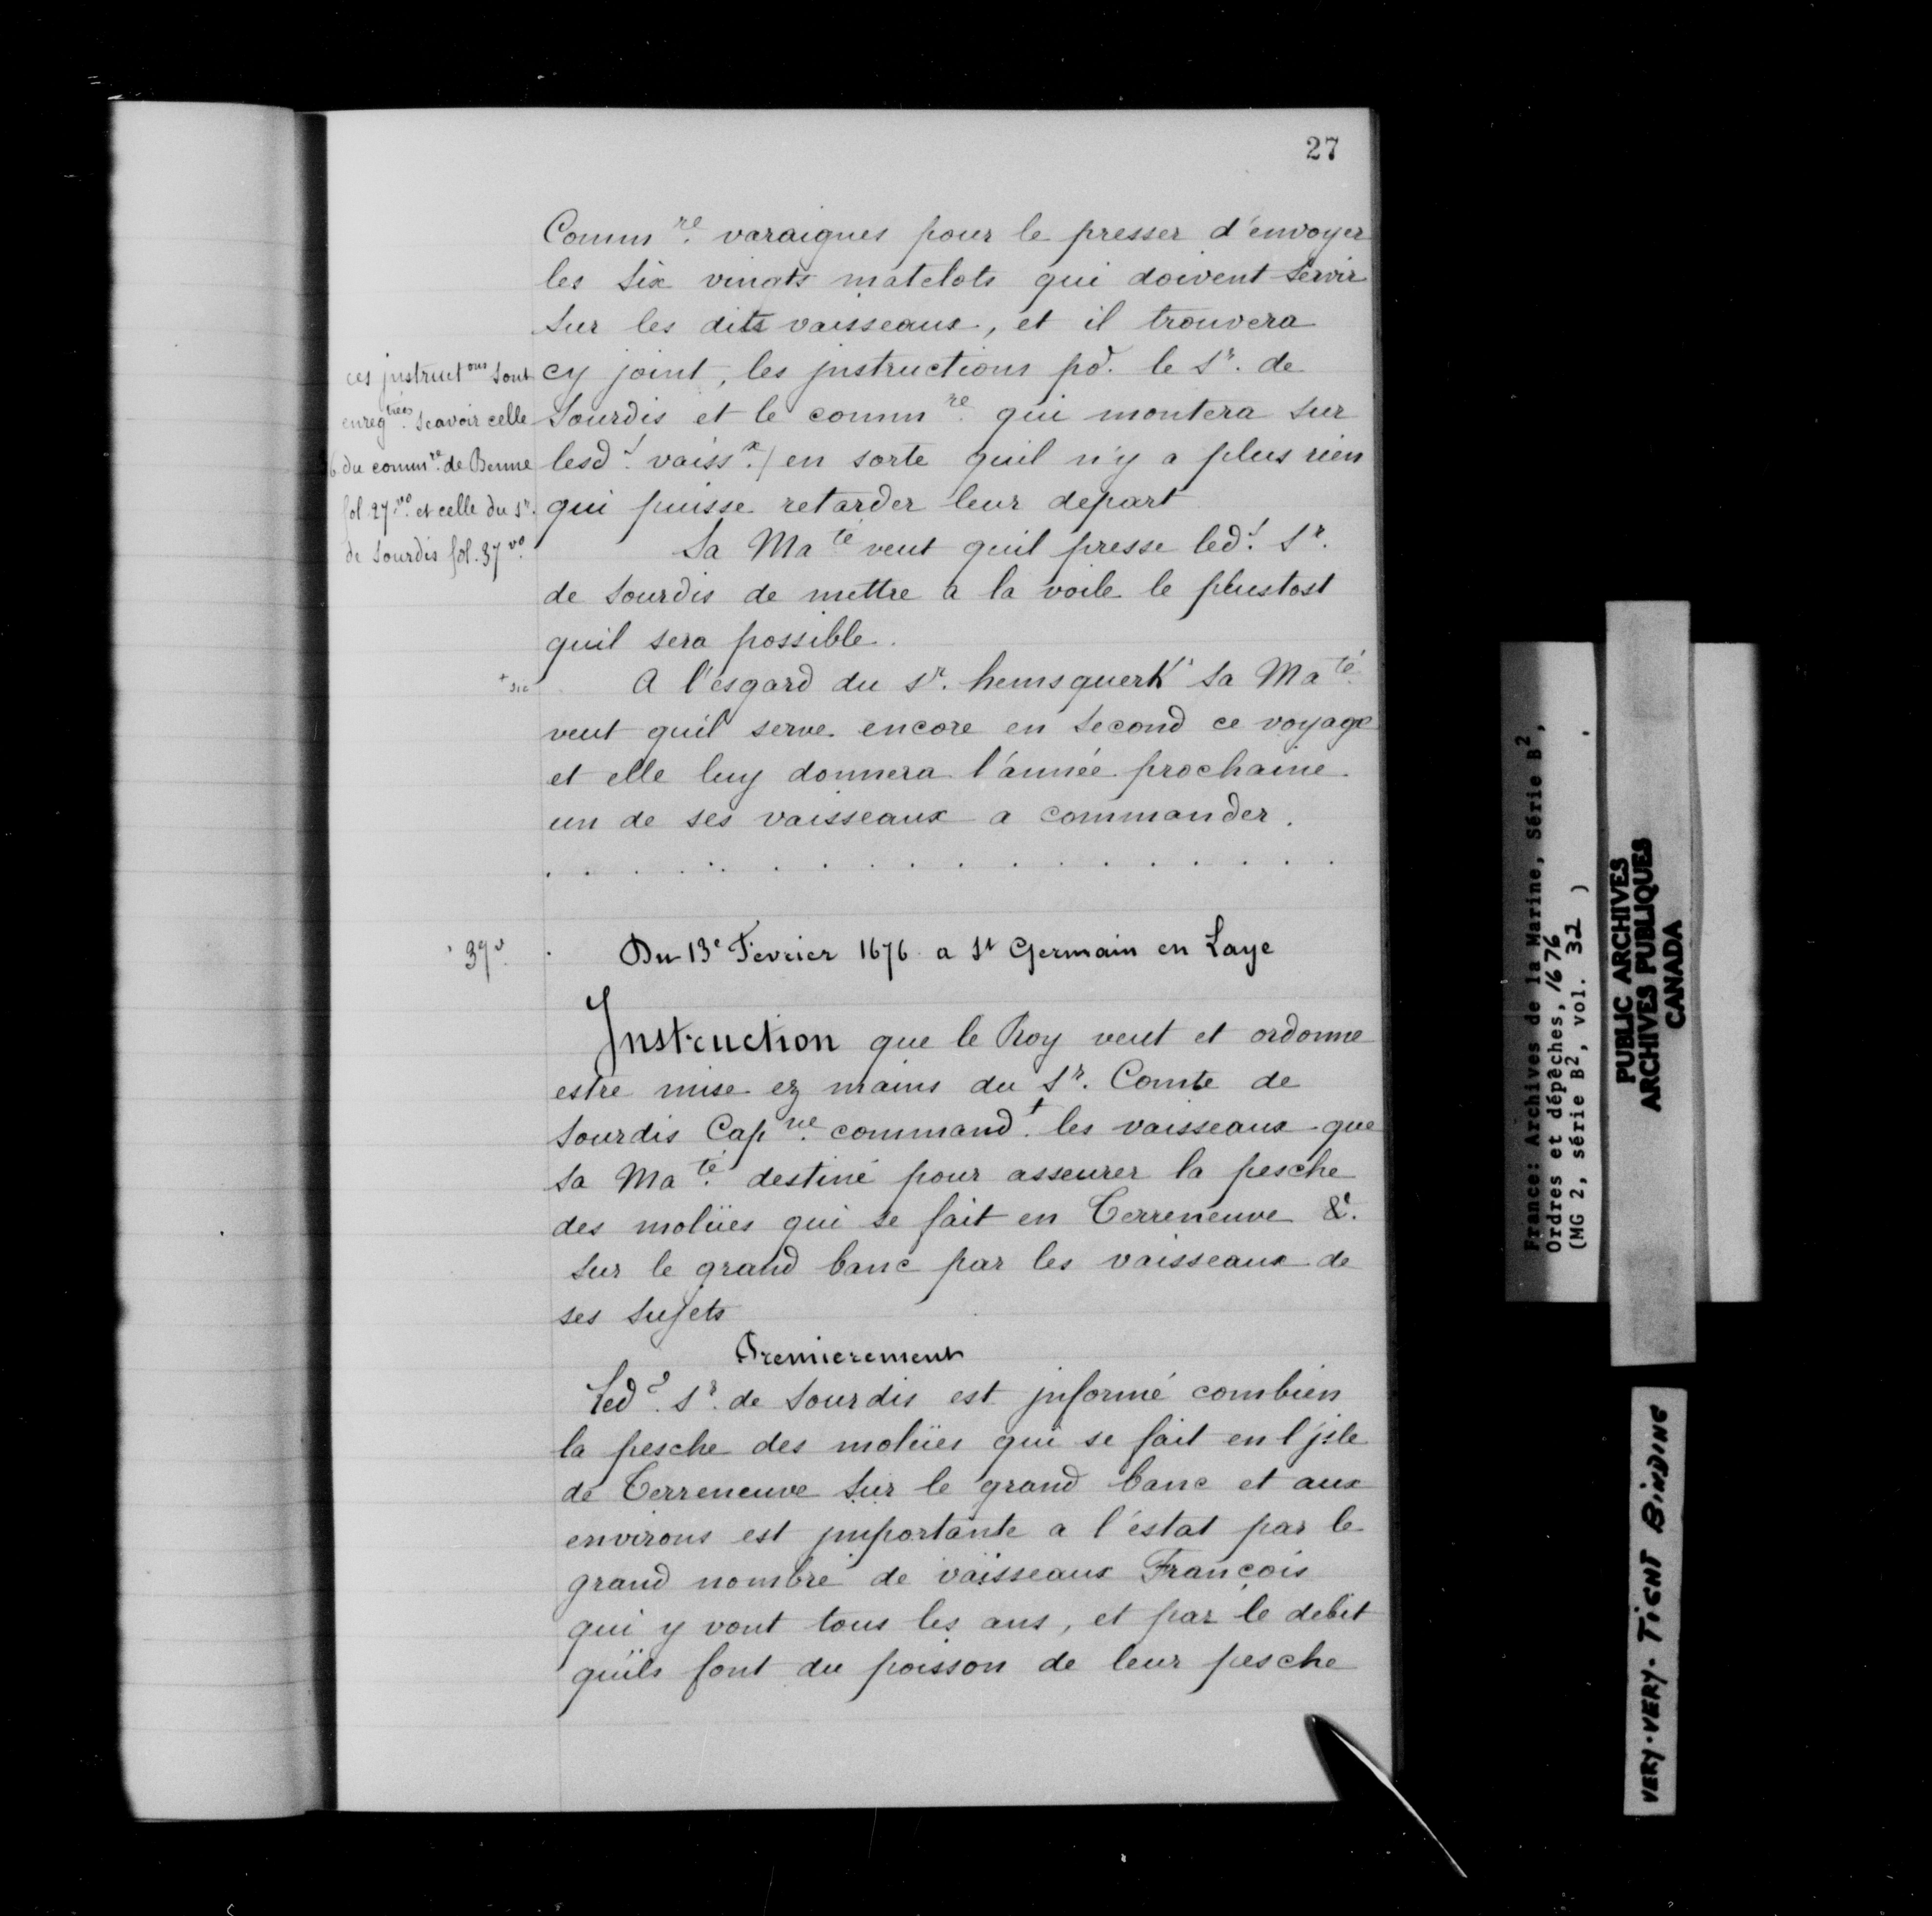 27
Comm.re varaignes pour le presser d'envoyer
les six vingts matelots qui doivent servir
sur les dits vaisseaux, et il trouvera
cy joint, les jnstructions po.r le Sr. de
Sourdis et le comm.re qui montera sur
lesd.s vaiss.x / en sorte quil n'y a plus rien
qui puisse retarder leur depart
Sa Ma.té veut quil presse led.t Sr.
de Sourdis de mettre a la voile le plustost
quil sera possible.
ces jnstruct.ons sont
enreg.trées scavoir celle
du comm.re de Benne
fol. 27 vo. et celle du Sr.
de Sourdis fol. 37 vo.
+ sic
A l'esgard du Sr. hemsquerk+ Sa Ma.té
veut quil serve encore en second ce voyage
et elle luy donnera l'année prochaine
un de ses vaisseaux a commander.
. . . . . . . . . . . . . . .
37 v.
Du 13e Fevrier 1676 a St Germain en Laye
Jnstruction que le Roy veut et ordonne
estre mise ez mains du Sr. Comte de
Sourdis Cap.ne command.t les vaisseaux que
Sa Ma.té destine pour asseurer la pesche
des molües qui se fait en Terreneuve &.
sur le grand banc par les vaisseaux de
ses sujets
Premierement
Led.t Sr. de Sourdis est jnformé combien
la pesche des molües qui se fait en l'jsle
de Terreneuve sur le grand banc et aux
environs est jmportante a l'estat par le
grand nombre de vaisseaux François
qui y vont tous les ans, et par le debit
quils font du poisson de leur pesche
France: Archives de la Marine, Série B2,
Ordres et dépêches, 1676
(MG 2, série B2, vol. 32 )
PUBLIC ARCHIVES
ARCHIVES PUBLIQUES
CANADA
VERY-VERY-TIGHT BINDING